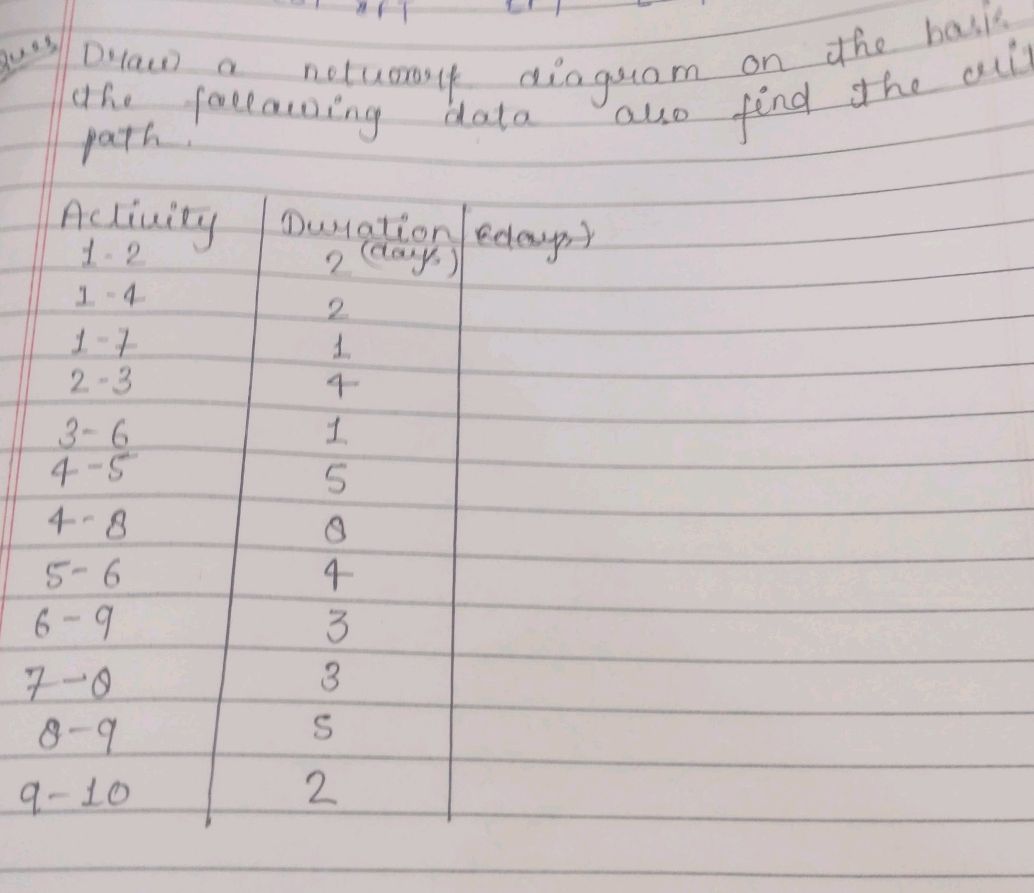 Ques Draw a network diagram on the basis
the following data also find the
path.
Activity Duration (days)
(days)
1-2 2
1-4 2
1-7 1
2-3 4
3-6 1
4-5 5
4-8 8
5-6 4
6-9 3
7-8 3
8-9 5
9-10 2